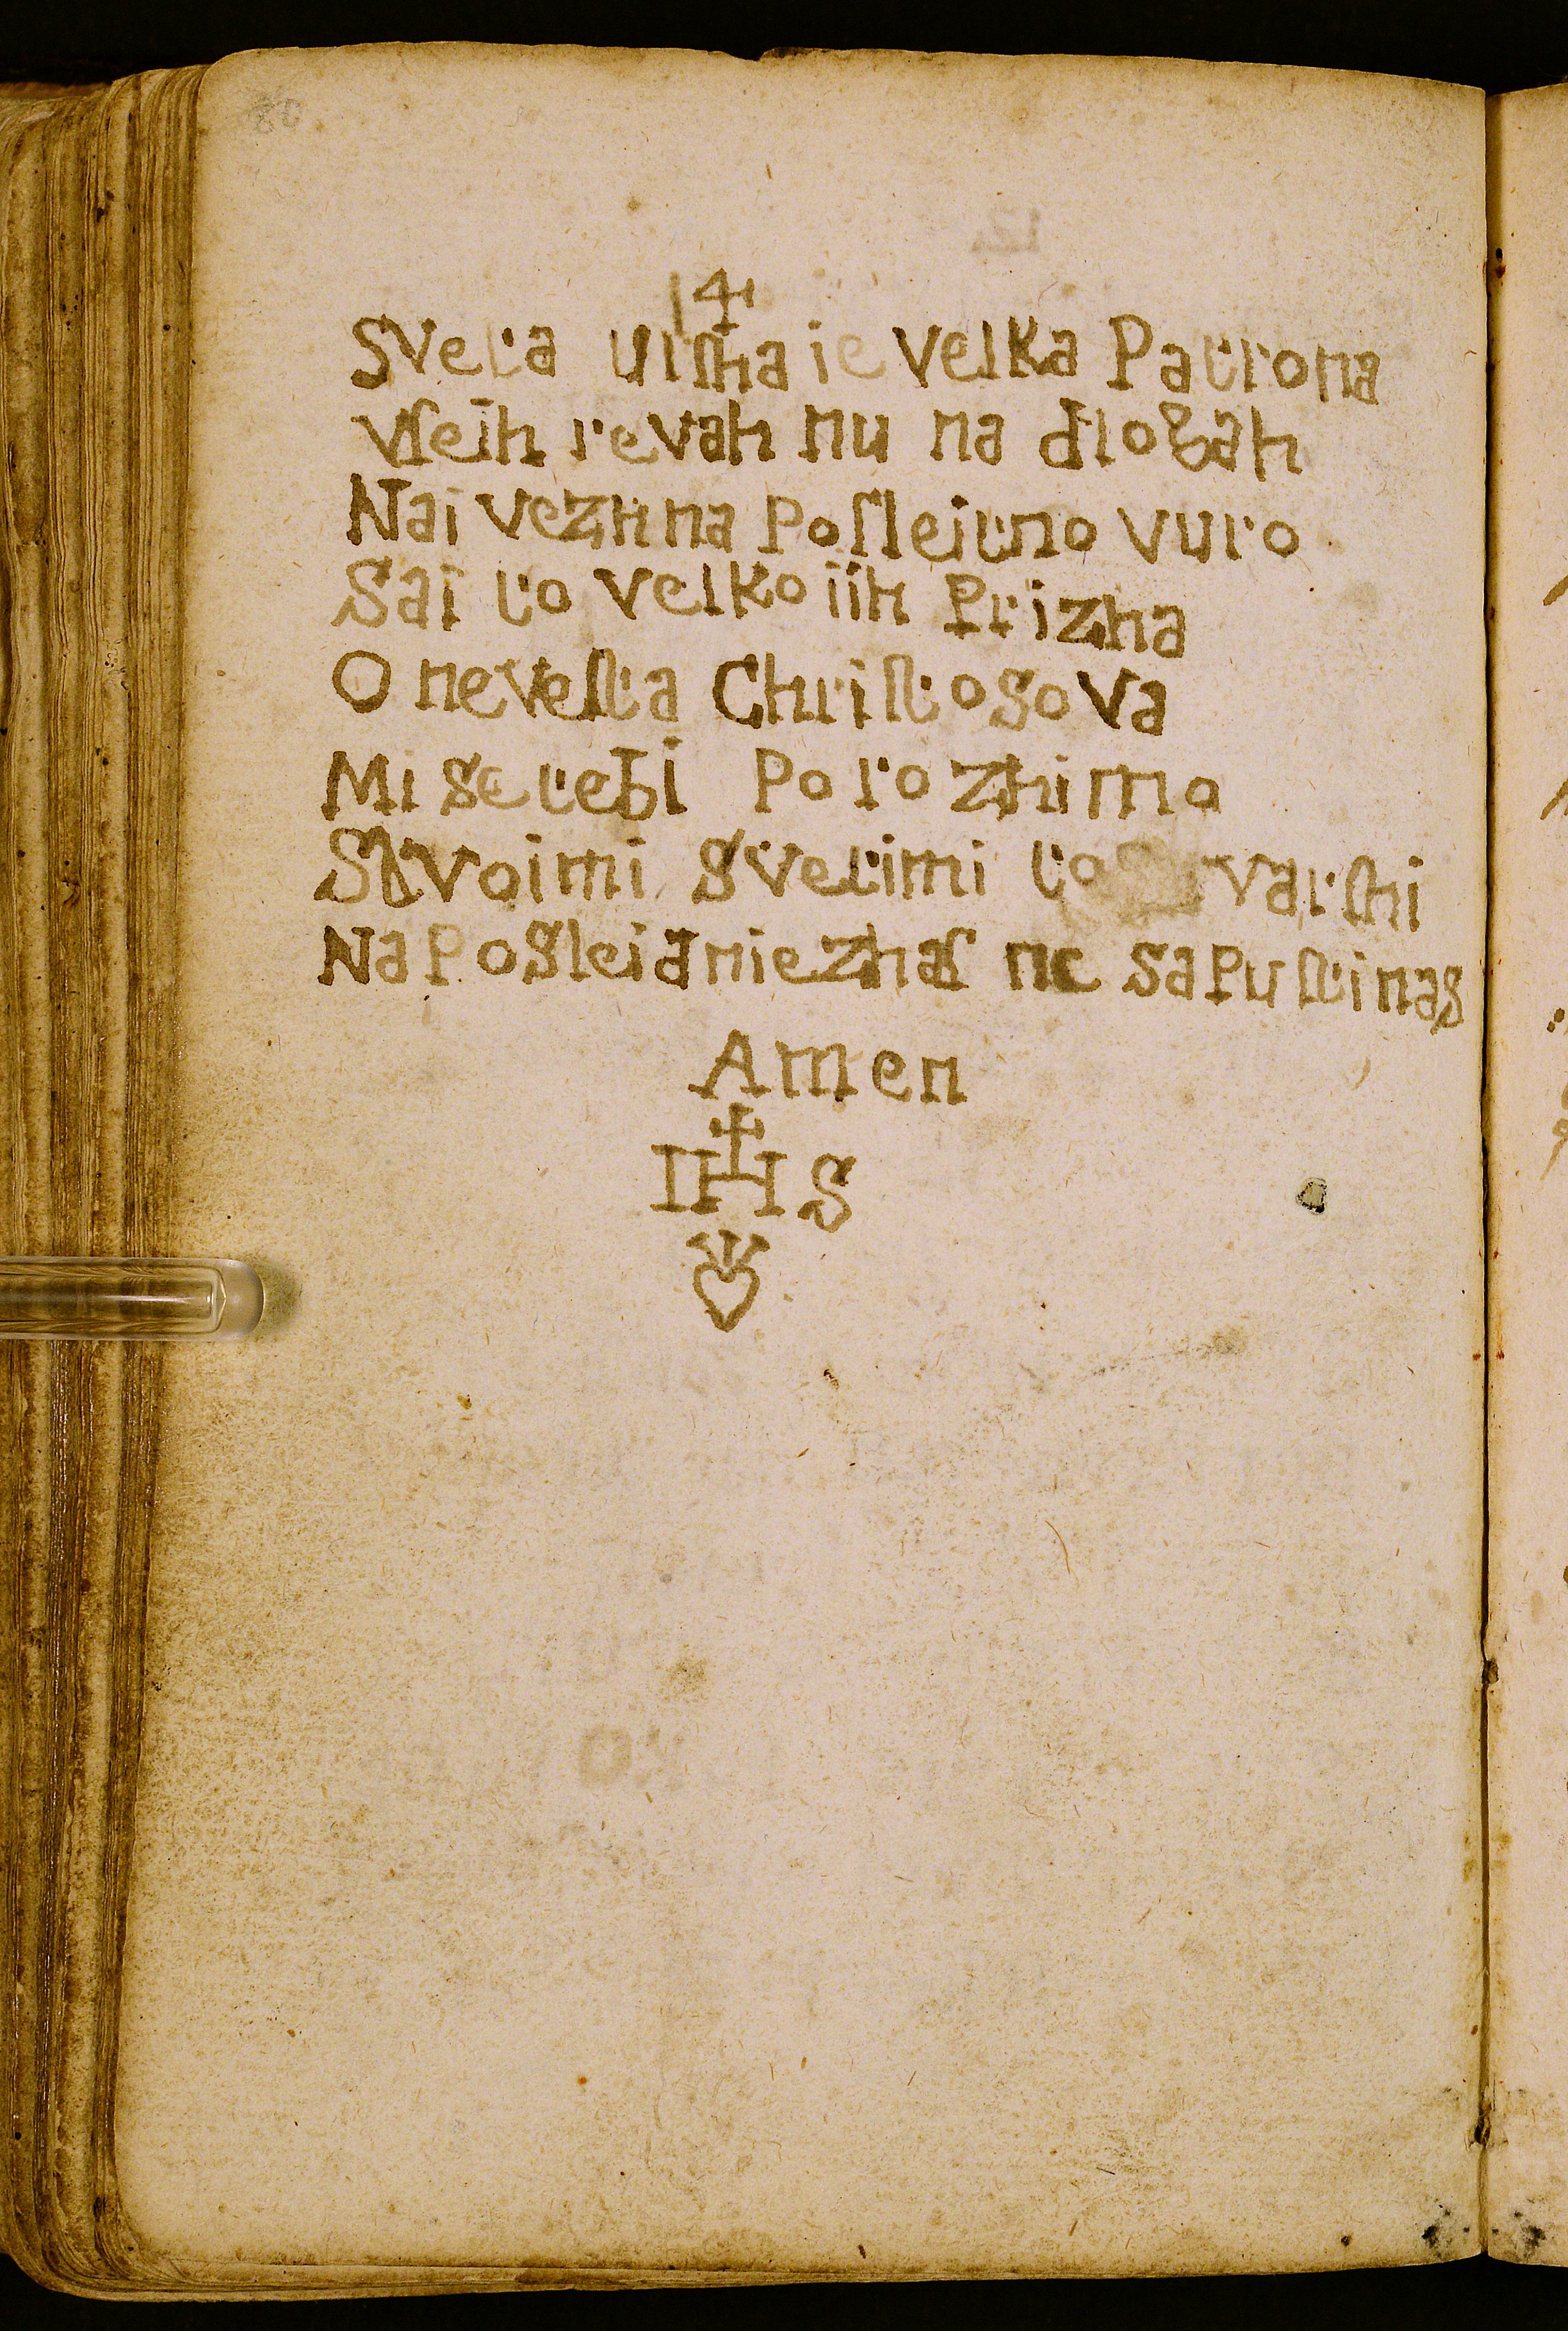 80
14
Sveta Urſha ie velka Patrona
vſeih revah nu na dlogah
Nai vezh na Poſleitno vuro
Sai to velko iih Prizha
O neveſta Chriſtosova
Mi se tebi Porozhimo
S tvoimi svetimi to varſhi
Na Posleidnie zhaſ ne saPuſti nas
Amen
IHS